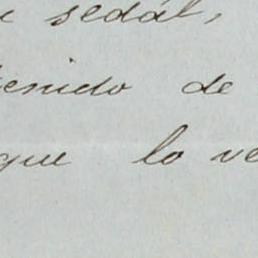 sedal,
enido de
que lo ve